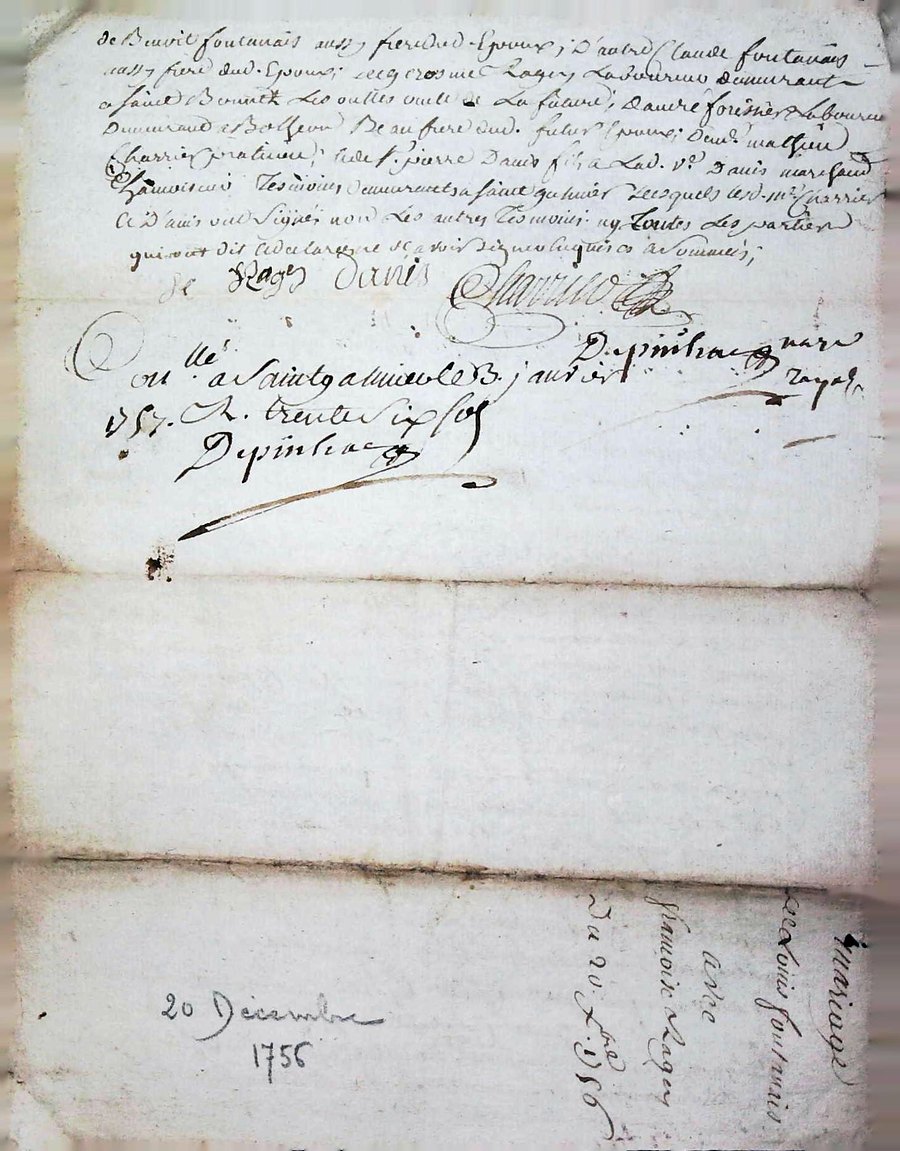 de Benoit fontanais aussy frere dud. Epoux, D'autre Claude fontanais
aussy frere dud. Epoux; Rages Laboureur demeurant
a saint Bonnet Les oulles oncle de La future, D'andré forissier Laboureur
Demeurand a Beau frere dud. futur Epoux; mathieu
Charrier praticien, st. pierre Danis fils a Lad. ve. Danis marchand
Chamoiseur Tesmoins Demeurants a saint galmier Lesquels led. mr. Charrier
Et Danis ont signés non Les autres Tesmoins ny Toutes Les parties
qui ont dit et declaré ne sçavoir signer Enquis et Sommés;
Rages Danis Charrier
Depinhac nore
royal
Conllé a Saint galmier le 3. janvier
1757. R. trente Six sols
Depinhac
20 Décembre
1756
mariage
De Louis fontanais
avec
francoise Rages
Du 20. xbre 1756